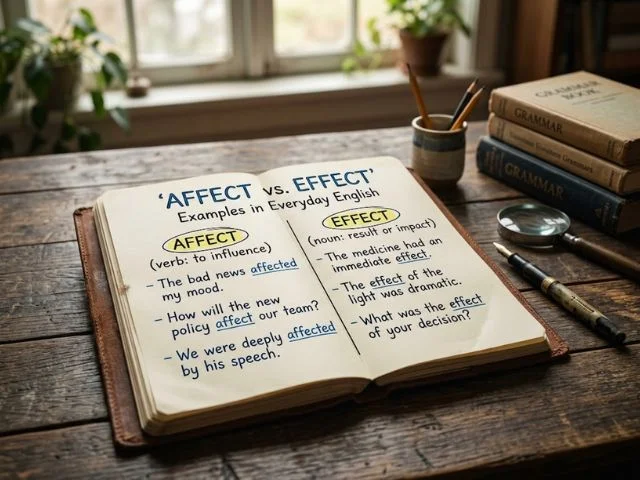 'AFFECT vs. EFFECT'
Examples in Everyday English
AFFECT
(verb: to influence)
- The bad news affected
my mood.
- How will the new
policy affect our team?
- We were deeply affected
by his speech.
EFFECT
(noun: result or impact)
- The medicine had an
immediate effect.
- The effect of the
light was dramatic.
- What was the effect
of your decision?
GRAMMAR
BOOK
GRAMMAR
GRAMMAR